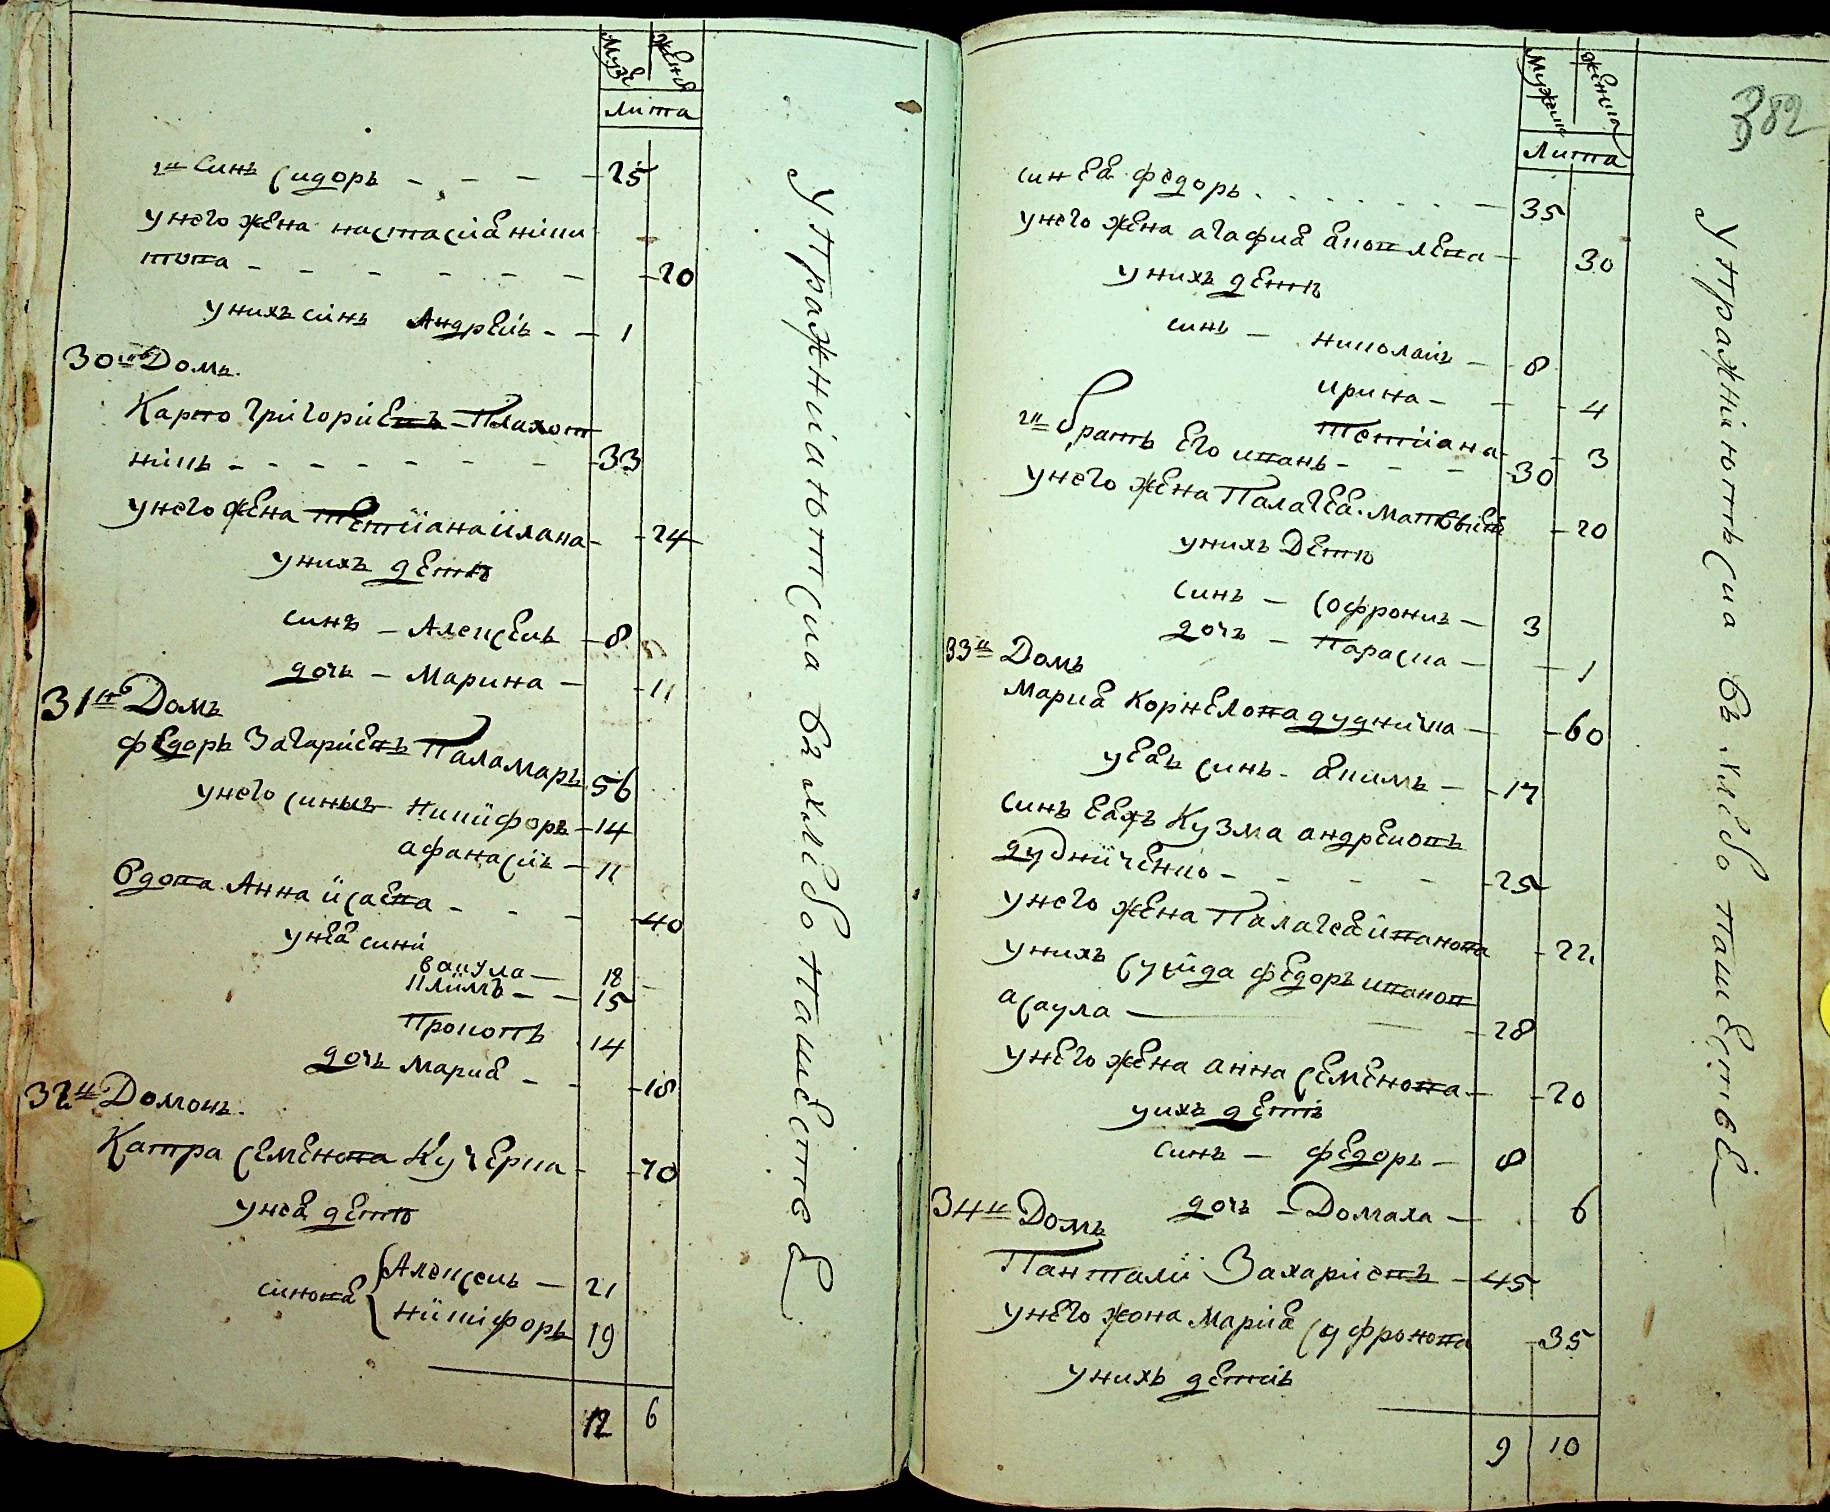 Музе жене
лита
2й Синъ Сидоръ - - - - 25
унего жена настасиа ники
това - - - - - - 20
унихъ синъ Андрей - - 1
30й Домъ.
Карпо Григориевъ Плахот
никъ - - - - - - - 33
унего жена Тетиана илина - 24
унихъ дети
синъ - Алексей - 8
дочь - Марина - 11
31й Домъ
Федоръ Загариевъ Паламаръ 56
унего синыъ Никифоръ - 14
афанасий - 11
вдова Анна исаева - - - 40
унеа сини
вакула - 18
Климъ - - 15
Прокопъ 14
дочь Мариа - - 18
32й Домонъ.
Катра Семенова Кучерка - 70
унеа дети
синова { Алексей - 21
никифоръ 19
12 6
Упражніаютсиа въ хлебопашестве
382
мужеш женша
Лита
син еа Федоръ . . . . . . . - 35
унего жена агафиа аковлева - 30
унихъ дети
синъ - николай - 8
ирина - - - 4
Тетиана - 3
2й братъ Его иванъ - - - - 30
унего жена Палагеа Матвеева - 20
унихъ Дети
Синъ - Софроний - 3
дочь - Параска - - 1
33й Домъ
Мариа Корнелова дудничка - - 60
унеаи синъ - аким - - 17
Синъ Еахъ Кузма андреиовъ
дудниченко - - - - - 25
унего жена Палагеа иванова - 22
унихъ Сусида Федоръ иванов
асаула - - 28
унего жена анна Семенова - - 20
уихъ дети
синъ - Федоръ - 8
дочь - Домаха - 6
34й Домъ
Панталий Захариевъ - 45
унего жона Мариа Суфронова - 35
унихъ детий
9 10
Упражніютсиа въ хлебо пашестве